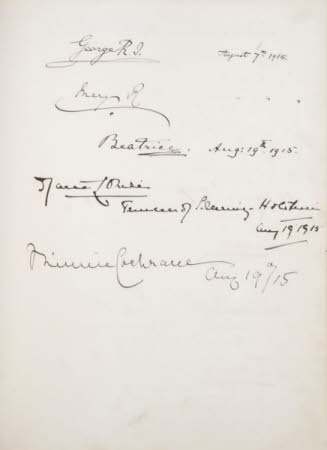 George R.I. August 7th 1915.
Mary R " "
Beatrice. Aug: 19th 1915.
Marie Louise
Princess of Sleswig-Holstein
Aug 19 1915
Minnie Cochrane Aug 19th/15